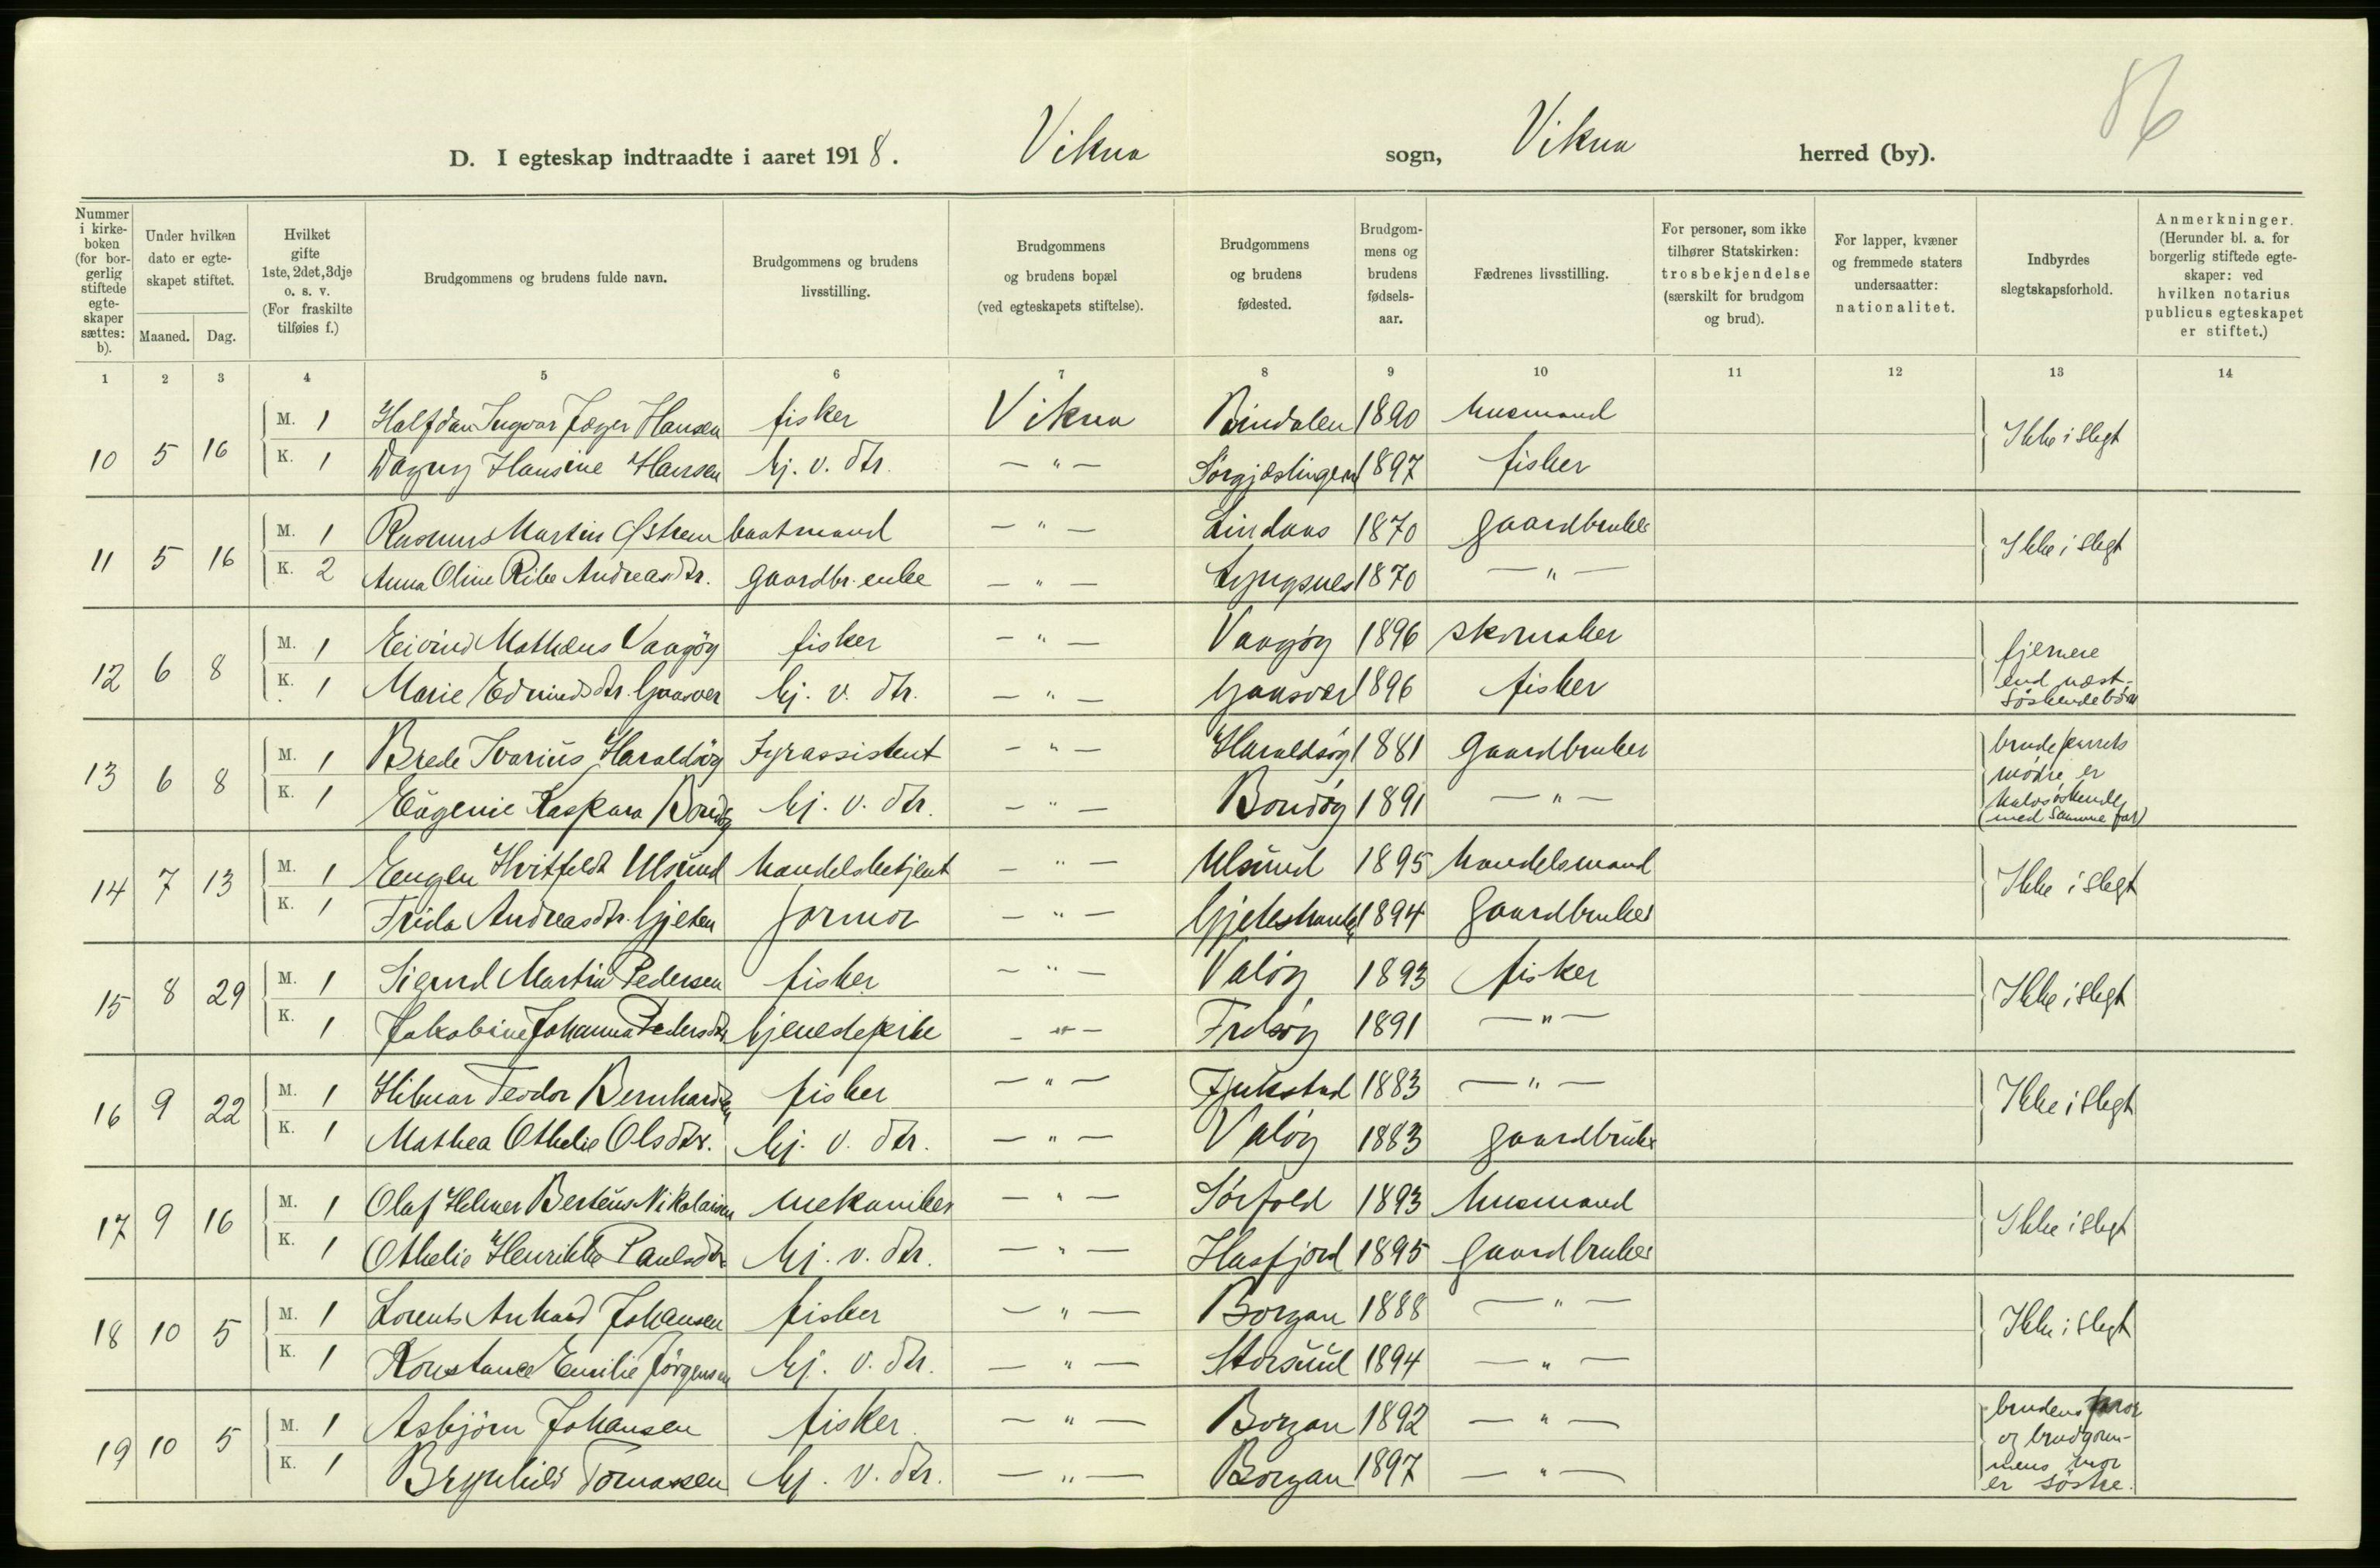 86
D. I egteskap indtraadte i aaret 1918. Vikna sogn, Vikna herred (by).
Nummer i kirkeboken (for borgerlig stiftede egteskaper sættes: b).
Under hvilken dato er egteskapet stiftet.
Maaned. Dag.
Hvilket gifte 1ste, 2det, 3dje o. s. v. (For fraskilte tilføies f.)
Brudgommens og brudens fulde navn.
Brudgommens og brudens livsstilling.
Brudgommens og brudens bopæl (ved egteskapets stiftelse).
Brudgommens og brudens fødested.
Brudgommens og brudens fødselsaar.
Fædrenes livsstilling.
For personer, som ikke tilhører Statskirken: trosbekjendelse (særskilt for brudgom og brud).
For lapper, kvæner og fremmede staters undersaatter: nationalitet.
Indbyrdes slegtskapsforhold.
Anmerkninger. (Herunder bl. a. for borgerlig stiftede egteskaper: ved hvilken notarius publicus egteskapet er stiftet.)
1 2 3 4 5 6 7 8 9 10 11 12 13 14
10 5 16 M. 1 Halfdan Ingvar Jæger Hansen fisker Vikna Bindalen 1890 husmand Ikke i slegt
K. 1 Dagny Hansine Hansen hj. v. dtr. — " — Sørgjæslingen 1897 fisker
11 5 16 M. 1 Rasmus Martin Østrem baatmand — " — Lindaas 1870 gaardbruker Ikke i slegt
K. 2 Anna Oline Ribe Andreasdtr. gaardbr. enke — " — Lyngsnes 1870 — " —
12 6 8 M. 1 Eivind Mathæus Vaagøy fisker — " — Vaagøy 1896 skomaker fjernere end næstsøskendebørn
K. 1 Marie Edvindsdtr. Gaasvær hj. v. dtr. — " — Gaasvær 1896 fisker
13 6 8 M. 1 Brede Ivarius Haraldsøy Fyrassistent — " — Haraldsøy 1881 Gaardbruker brudeparrets mødre er halvsøskende (med samme far)
K. 1 Eugenie Kaspara Bondøy hj. v. dtr. — " — Bondøy 1891 — " —
14 7 13 M. 1 Eugen Hvitfeldt Ulsund handelsbetjent — " — Ulsund 1895 handelsmand Ikke i slegt
K. 1 Frida Andreasdtr. Gjeten jormor — " — 1894 gaardbruker
15 8 29 M. 1 Sigurd Martin Pedersen fisker — " — Valøy 1893 fisker Ikke i slegt
K. 1 Jakobine Johanna Pedersdtr. tjenestepike — " — 1891 — " —
16 9 22 M. 1 Hilmar Teodor Bernhardsen fisker — " — 1883 — " — Ikke i slegt
K. 1 Mathea Othelie Olsdtr. hj. v. dtr. — " — Valøy 1883 gaardbruker
17 9 16 M. 1 Olaf Helmer Berteus Nikolaisen mekaniker — " — Sørfold 1893 husmand Ikke i slegt
K. 1 Othelie Henrikke Paulsdtr. hj. v. dtr. — " — Hasfjord 1895 gaardbruker
18 10 5 M. 1 Lorents Anhard Johansen fisker — " — Borgan 1888 — " — Ikke i slegt
K. 1 Konstance Emilie Jørgensen hj. v. dtr. — " — Storsund 1894 — " —
19 10 5 M. 1 Asbjørn Johansen fisker — " — Borgan 1892 — " — brudens mor og brudgommens mor er søstre.
K. 1 Brynhild Tomassen hj. v. dtr. — " — Borgan 1897 — " —